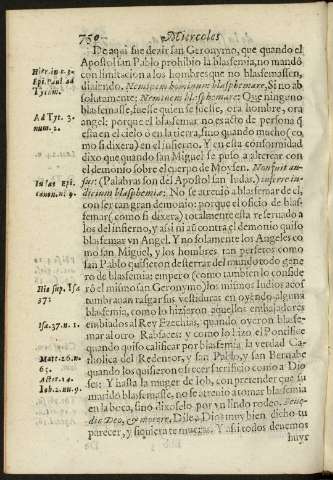 750 Miercoles
De aqui fue dezir san Geronymo, que quando el
Apostol san Pablo prohibiò la blasfemia, no mandò
con limitacion a los hombres que no blasfemassen,
diziendo. Neminem hominum blasphemare, Si no ab
solutamente: Neminem blasphemare: Que ninguno
blasfemasse, fuesse quien se fuesse, ora hombre, ora
angel: porque el blasfemar no es acto de persona q̃
està en el cielo ò en la tierra, sino quando mucho (co
mo si dixera) en el infierno. Y en esta conformidad
dixo que quando san Miguel se puso a altercar con
el demonio sobre el cuerpo de Moysen. Non fuit au-
sus: (Palabras son del Apostol san Iudas,) inferre iu-
dicium blasphemiæ: No se atreuiò a blasfemar de el,
con ser tan gran demonio: porque el oficio de blas-
femar (como si dixera) totalmente esta reseruado a
los del infierno, y assi ni aũ contra el demonio quiso
blasfemar vn Angel. Y no solamente los Angeles co
mo san Miguel, y los hombres tan perfetos como
san Pablo quisieron desterrar del mundo todo gene
ro de blasfemia: empero (como tambien lo conside
rò el mismo san Geronymo) los mismos Iudios acos
tumbrauan rasgar sus vestiduras en oyendo alguna
blasfemia, como lo hizieron aquellos embajadores
embiados al Rey Ezechias, quando oyeron blasfe-
mar al otro Rabsaces: y como lo hizo el Pontifice
quando quiso calificar por blasfemia la verdad Ca-
tholica del Redentor, y san Pablo, y san Bernabe
quando los quisieron ofrecer sacrificio como a Dio
ses: Y hasta la muger de Iob, con pretender que su
marido blasfemasse, no se atreuio a tomar blasfemia
en la boca, sino dixoselo por vn lindo rodeo. Bene-
dic Deo, & morere, Dile a Dios muy bien dicho tu
parecer, y siquiera te mueras. Y assi todos deuemos
huyr
Hier. in c. 3.
Epi. Paul. ad
Tytum.
Ad Tyt. 3.
num. 2.
Iudas Epi.
canon. nu. 9.
Hie sup. Isa
37:
Isa. 37. n. 1.
Matt. 26. n.
65.
Actor. 14.
Iob. 2. nu. 9.